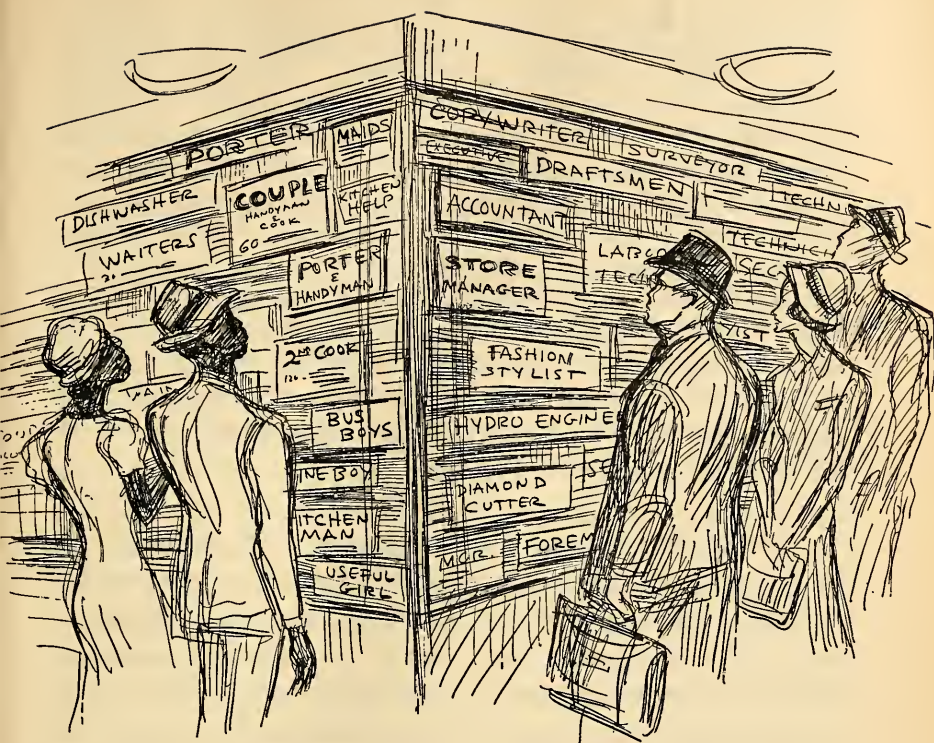 PORTER
MAIDS
DISHWASHER
COUPLE
HANDYMAN
&
COOK
60
KITCHEN
HELP
WAITERS
PORTER
&
HANDYMAN
2ND COOK
BUS
BOYS
INE BOY
ITCHEN
MAN
USEFUL
GIRL
COPYWRITER
SURVEYOR
EXECUTIVE
DRAFTSMEN
TECHN
ACCOUNTANT
LABO
TECH
TECHNICI
SEC
STORE
MANAGER
YIST
FASHION
STYLIST
HYDRO ENGINE
DIAMOND
CUTTER
SE
MGR.
FOREM